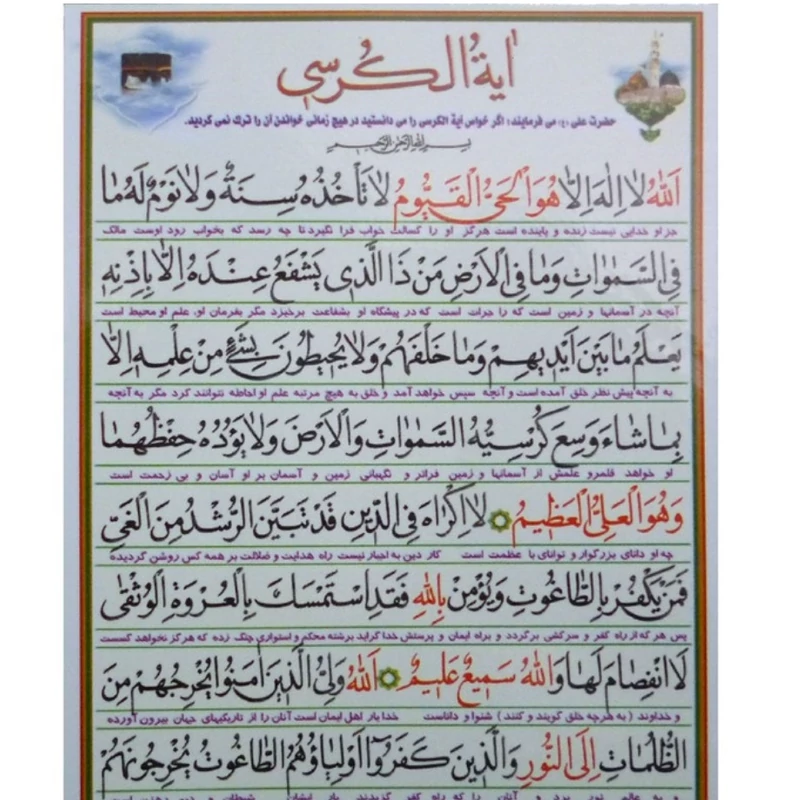 اٰیة الکرسی
حضرت علی (ع) می فرمایند: اگر خواص آیة الکرسی را می دانستید در هیچ زمانی خواندن آن را ترک نمی کردید.
بسم الله الرحمن الرحیم
اَللهُ لا اِلٰهَ اِلّا هُوَ الْحَیُّ الْقَیُّومُ لا تَأخُذُهُ سِنَةٌ وَلا نَوْمٌ لَهُ ما
جز او خدایی نیست زنده و پاینده است هرگز او را کسالت خواب فرا نگیرد تا چه رسد که بخواب رود اوست مالک
فِی السَّمٰواتِ وَما فِی الْاَرْضِ مَنْ ذَا الَّذی یَشْفَعُ عِنْدَهُ اِلّا بِاِذْنِهِ
آنچه در آسمانها و زمین است که را جرات است که در پیشگاه او بشفاعت برخیزد مگر بفرمان او، علم او محیط است
یَعْلَمُ ما بَیْنَ اَیْدیهِمْ وَما خَلْفَهُمْ وَلا یُحیطُونَ بِشَیْءٍ مِنْ عِلْمِهِ اِلّا
به آنچه پیش نظر خلق آمده است و آنچه سپس خواهد آمد و خلق به هیچ مرتبه علم او احاطه نتوانند کرد مگر به آنچه
بِما شاءَ وَسِعَ کُرْسِیُّهُ السَّمٰواتِ وَالْاَرْضَ وَلا یَؤُدُهُ حِفْظُهُما
او خواهد قلمرو علمش از آسمانها و زمین فراتر و نگهبانی زمین و آسمان بر او آسان و بی زحمت است
وَهُوَ الْعَلِیُّ الْعَظیمُ لا اِکْراهَ فِی الدّینِ قَدْ تَبَیَّنَ الرُّشْدُ مِنَ الْغَیِّ
چه او دانای بزرگوار و توانای با عظمت است کار دین به اجبار نیست راه هدایت و ضلالت بر همه کس روشن گردیده
فَمَنْ یَکْفُرْ بِالطّاغُوتِ وَیُؤْمِنْ بِاللهِ فَقَدِ اسْتَمْسَکَ بِالْعُرْوَةِ الْوُثْقٰی
پس هر که از راه کفر و سرکشی برگردد و براه ایمان و پرستش خدا گراید برشته محکم و استواری چنگ زده که هرگز نخواهد گسست
لَا انْفِصامَ لَها وَاللهُ سَمیعٌ عَلیمٌ اَللهُ وَلِیُّ الَّذینَ اٰمَنُوا یُخْرِجُهُمْ مِنَ
و خداوند ( به هرچه خلق گویند و کنند ) شنوا و داناست خدا یار اهل ایمان است آنان را از تاریکیهای جهان بیرون آورده
الظُّلُماتِ اِلَی النُّورِ وَالَّذینَ کَفَرُوا اَوْلِیاؤُهُمُ الطّاغُوتُ یُخْرِجُونَهُمْ
و به عالم نور برد و آنان را که راه کفر گزیدند یار ایشان